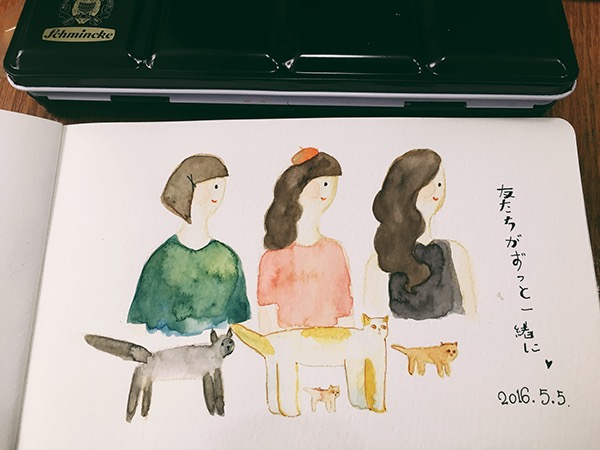 Schmincke
友たちがずっと一緒に
2016.5.5.